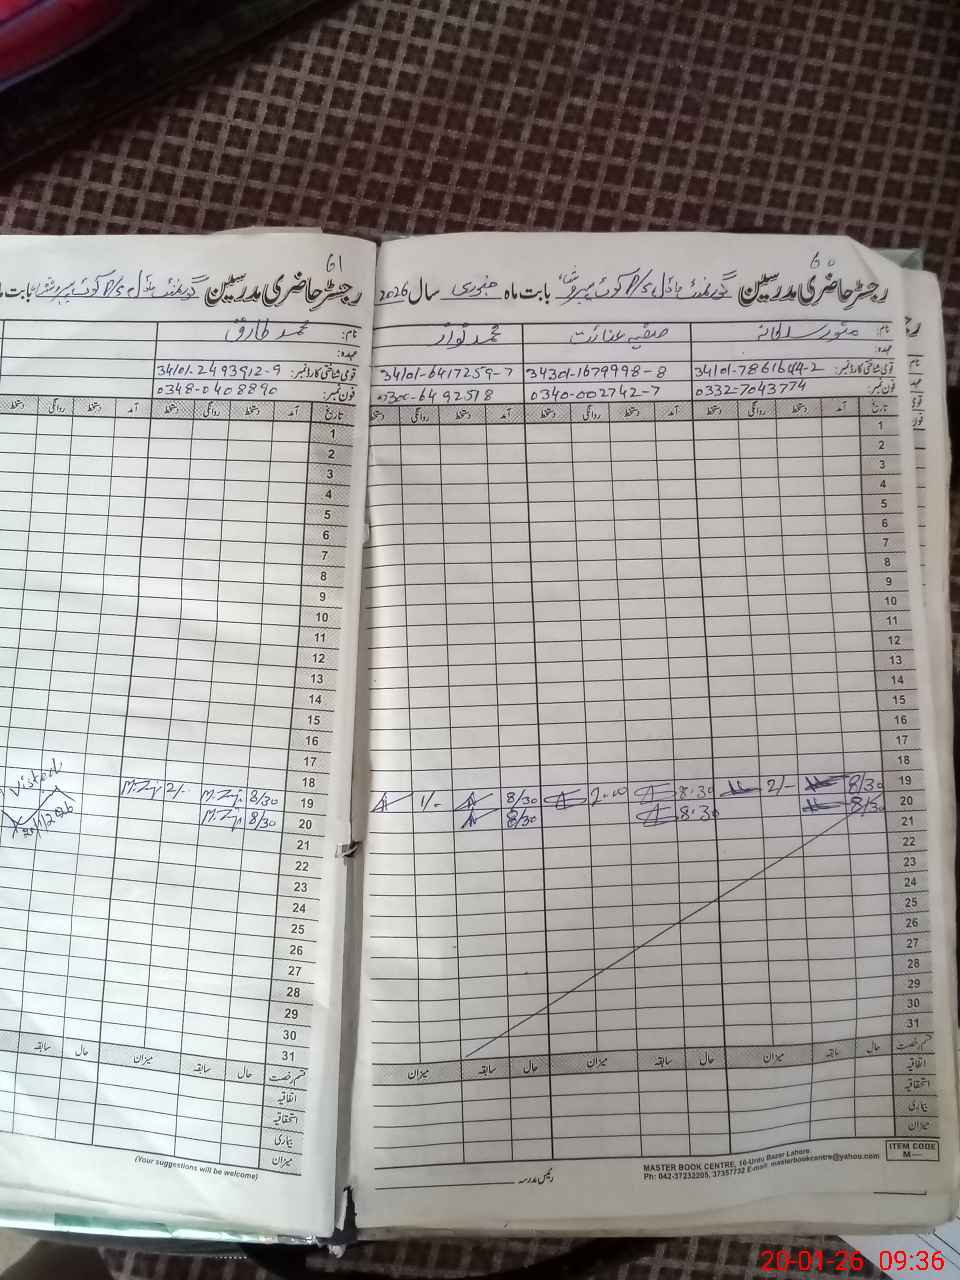 60
رجسٹر حاضری مدرسین گورنمنٹ ماڈل P/S کوٹ بابت ماہ جنوری سال 2026
نام: منور سلطانہ صفیہ عنائت محمد نواز
عہدہ:
قومی شناختی کارڈ نمبر: 34101-7861644-2 34301-1679998-8 34101-6417259-7
فون نمبر: 0332-7043774 0340-002742-7 0300-6492518
تاریخ آمد دستخط روانگی دستخط آمد دستخط روانگی دستخط آمد دستخط روانگی دستخط
1
2
3
4
5
6
7
8
9
10
11
12
13
14
15
16
17
18
19 8/30 2/- 8:30 2:00 8/30 1/-
20 8/30 8:30 8/30
21
22
23
24
25
26
27
28
29
30
31
قسم رخصت حال سابقہ میزان حال سابقہ میزان حال سابقہ میزان
اتفاقیہ
استحقاقیہ
بیماری
میزان
ITEM CODE
M—
MASTER BOOK CENTRE, 16-Urdu Bazar Lahore.
Ph: 042-37232205, 37357732 E-mail: masterbookcentre@yahoo.com
رئیس مدرسہ
61
رجسٹر حاضری مدرسین گورنمنٹ ماڈل P/S کوٹ بابت ما
نام: محمد طارق
عہدہ:
قومی شناختی کارڈ نمبر: 34101-2493912-9
فون نمبر: 0348-0408890
تاریخ آمد دستخط روانگی دستخط آمد دستخط روانگی
1
2
3
4
5
6
7
8
9
10
11
12
13
14
15
16
17
18
19 8/30 2/-
20 8/30
Visited
20/1/2026
21
22
23
24
25
26
27
28
29
30
31
قسم رخصت حال سابقہ میزان حال سابقہ
اتفاقیہ
استحقاقیہ
بیماری
میزان
(Your suggestions will be welcome)
20-01-26 09:36